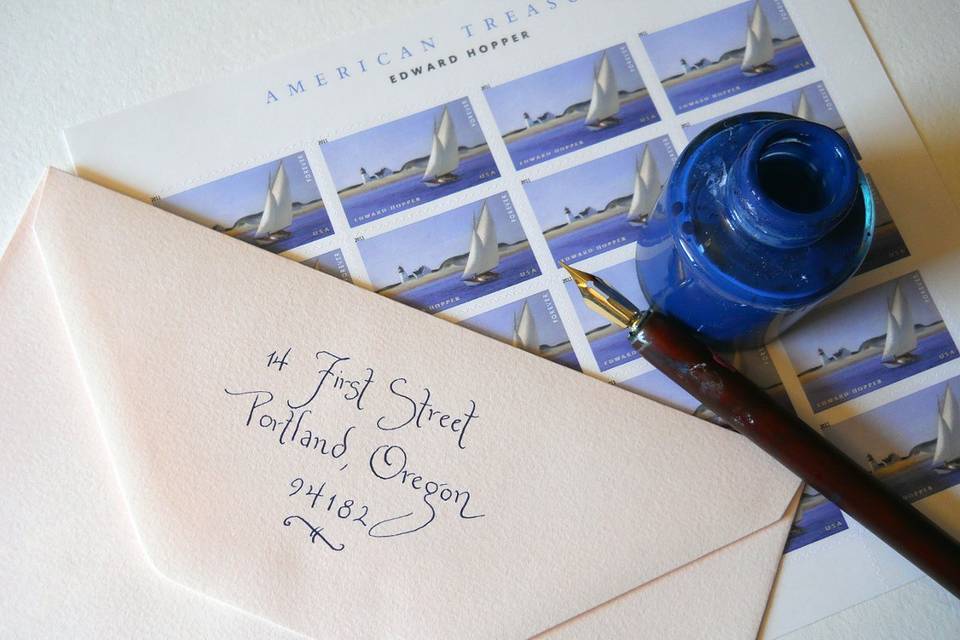 AMERICAN TREAS
EDWARD HOPPER
2011
FOREVER
EDWARD HOPPER
USA
14 First Street
Portland, Oregon
94182